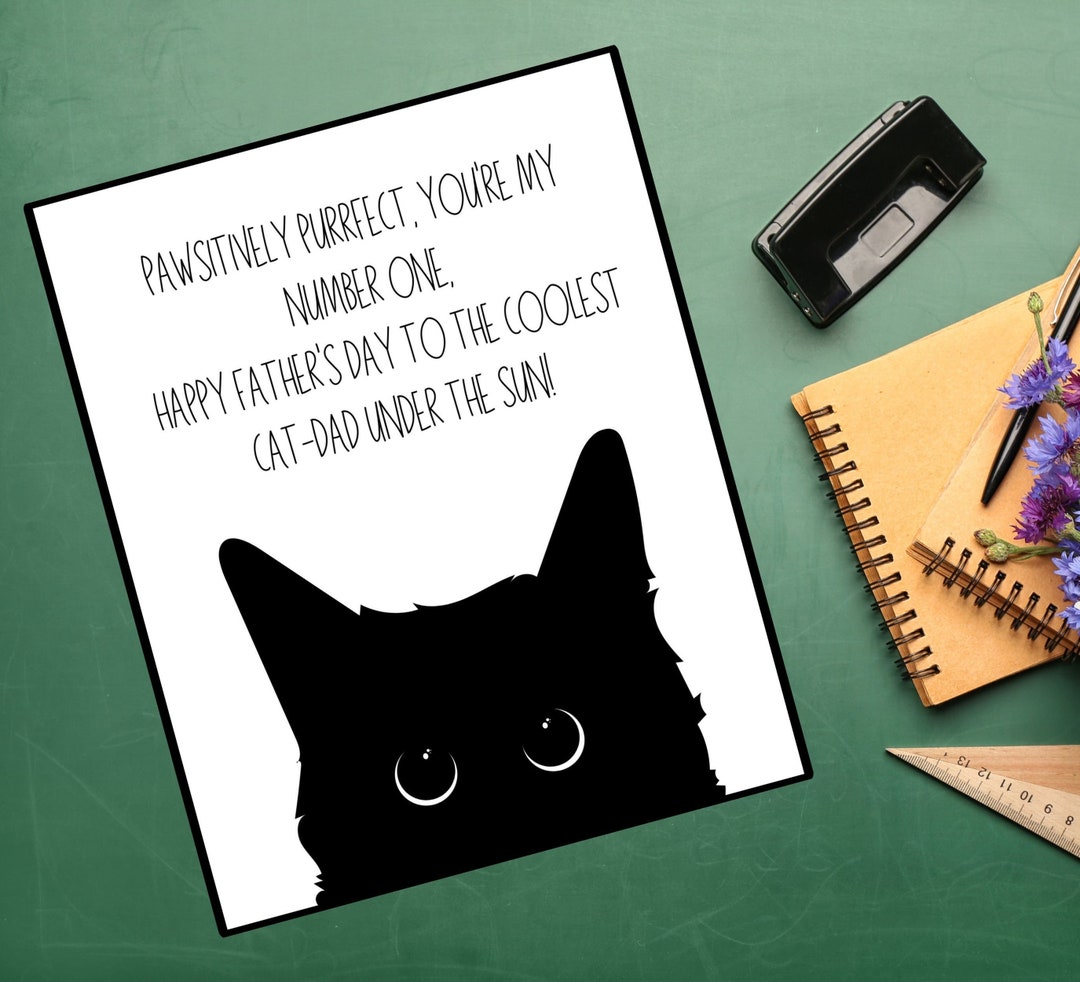 PAWSITIVELY PURRFECT, YOU'RE MY
NUMBER ONE,
HAPPY FATHER'S DAY TO THE COOLEST
CAT-DAD UNDER THE SUN!
13 12 11 10 9 8